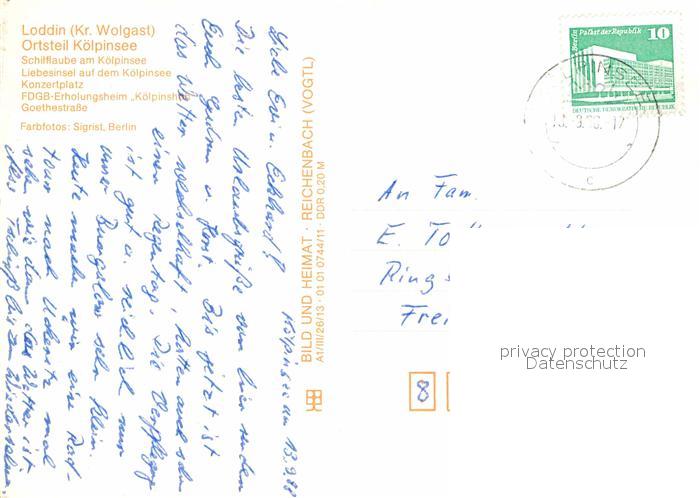 Loddin (Kr. Wolgast)
Ortsteil Kölpinsee
Schilflaube am Kölpinsee
Liebesinsel auf dem Kölpinsee
Konzertplatz
FDGB-Erholungsheim „Kölpinshöh"
Goethestraße
Farbfotos: Sigrist, Berlin
Kölpinsee am 13.9.88
Liebe Evi u. Eckhard!
Die besten Urlaubsgrüße von hier senden
Euch Gudrun u. Horst. Bis jetzt ist
das Wetter wechselhaft, hatten auch schon
einen Regentag. Die Verpflegung
ist gut u. reichlich nur
unser Bungalow sehr klein.
Heute machen wir eine Rad-
tour nach Ückeritz mal
sehen wie dann das Wetter ist
Alles Wiedersehen
BILD UND HEIMAT · REICHENBACH (VOGTL)
A1/III/26/13 · 01 01 0744/11 · DDR 0,20 M
Berlin Palast der Republik
10
DEUTSCHE DEMOKRATISCHE REPUBLIK
c
An Fam.
E. To
Ring
Frei
8
privacy protection
Datenschutz